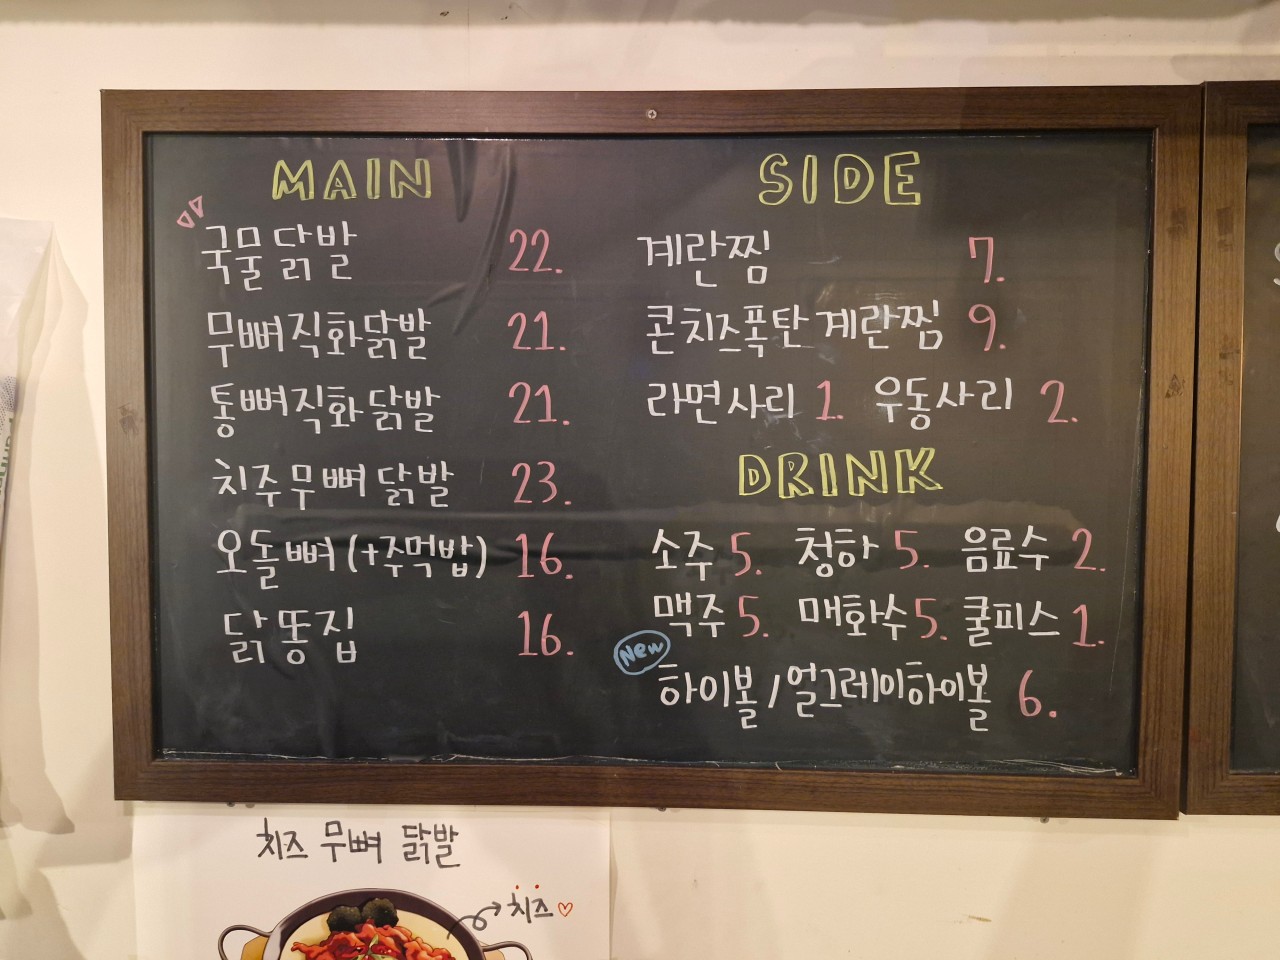 MAIN
국물닭발 22.
무뼈직화닭발 21.
통뼈직화닭발 21.
치즈무뼈닭발 23.
오돌뼈(+주먹밥) 16.
닭똥집 16.
SIDE
계란찜 7.
콘치즈폭탄계란찜 9.
라면사리 1. 우동사리 2.
DRINK
소주 5. 청하 5. 음료수 2.
맥주 5. 매화수 5. 쿨피스 1.
New
하이볼/얼그레이하이볼 6.
치즈 무뼈 닭발
치즈♡